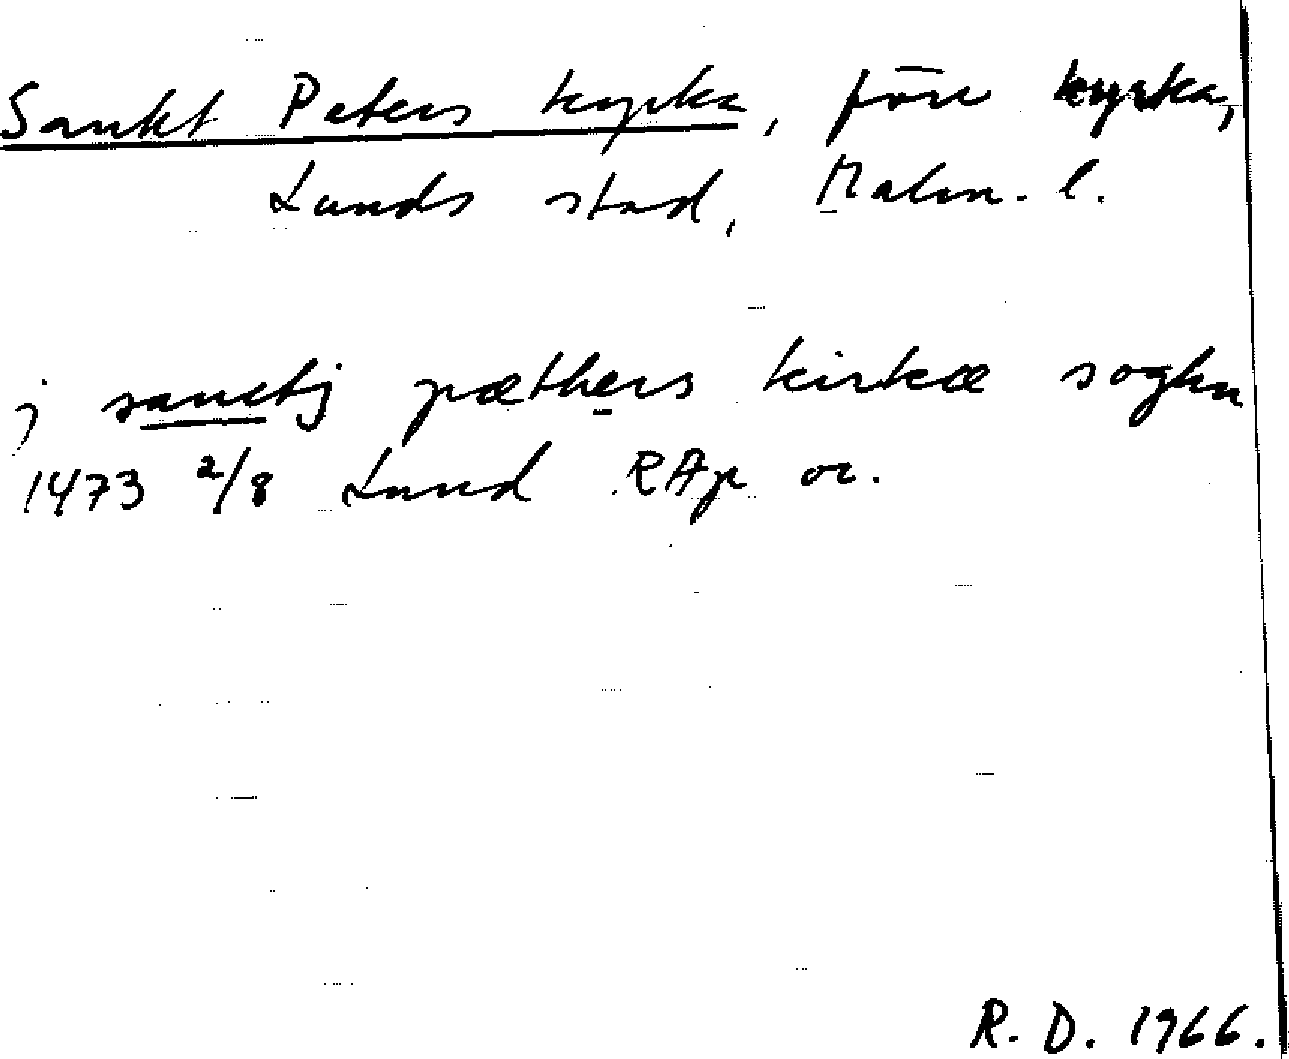 Sankt Peters kyrka, förr kyrka,
Lunds stad, Malm. l.
j sanctj pæthers kirkæ soghn
1473 2/8 Lund RAp or.
R. D. 1966.